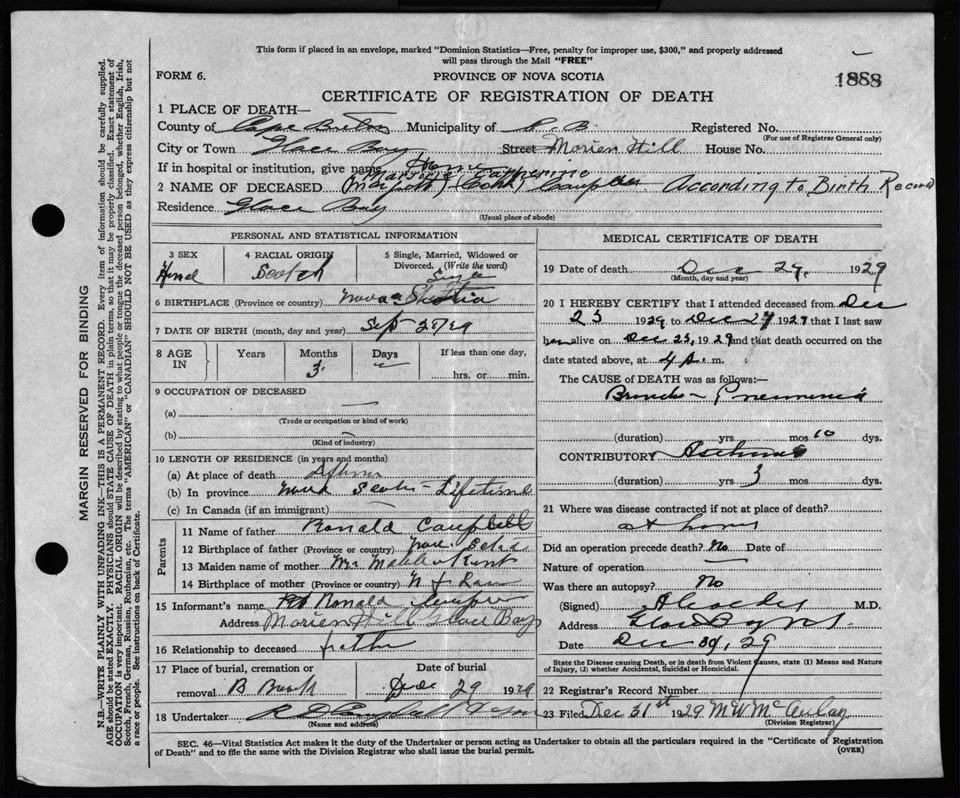 This form if placed in an envelope, marked "Dominion Statistics—Free, penalty for improper use, $300," and properly addressed
will pass through the Mail "FREE"
FORM 6.
PROVINCE OF NOVA SCOTIA
1888
CERTIFICATE OF REGISTRATION OF DEATH
1 PLACE OF DEATH—
County of Cape Breton Municipality of C. B. Registered No.
(For use of Registrar General only)
City or Town Glace Bay Street Morien Hill House No.
If in hospital or institution, give name Home
Catherine
2 NAME OF DECEASED According to Birth Record
Residence Glace Bay
(Usual place of abode)
PERSONAL AND STATISTICAL INFORMATION
3 SEX 4 RACIAL ORIGIN Scotch
5 Single, Married, Widowed or Divorced. (Write the word) Single
6 BIRTHPLACE (Province or country) Nova Scotia
7 DATE OF BIRTH (month, day and year) Sep 29
8 AGE IN Years Months 3 Days If less than one day, hrs. or min.
9 OCCUPATION OF DECEASED
(a)
(Trade or occupation or kind of work)
(b)
(Kind of industry)
10 LENGTH OF RESIDENCE (in years and months)
(a) At place of death Lifetime
(b) In province Nova Scotia - Lifetime
(c) In Canada (if an immigrant)
Parents
11 Name of father Ronald Campbell
12 Birthplace of father (Province or country) Nova Scotia
13 Maiden name of mother
14 Birthplace of mother (Province or country)
15 Informant's name Ronald
Address Morien Hill Glace Bay
16 Relationship to deceased father
17 Place of burial, cremation or removal B Brook
Date of burial Dec 29 1929
18 Undertaker
(Name and address)
MEDICAL CERTIFICATE OF DEATH
19 Date of death Dec 29, 1929
(Month, day and year)
20 I HEREBY CERTIFY that I attended deceased from Dec
23 1929 to Dec 1929 that I last saw
alive on Dec 1929 and that death occurred on the
date stated above, at 4 a. m.
The CAUSE of DEATH was as follows:—
Broncho-Pneumonia
(duration) yrs mos 10 dys.
CONTRIBUTORY Asthma
(duration) yrs 3 mos. dys.
21 Where was disease contracted if not at place of death?
at home
Did an operation precede death? No Date of
Nature of operation
Was there an autopsy? No
(Signed) M.D.
Address Glace Bay N.S.
Date Dec 29
State the Disease causing Death, or in death from Violent Causes, state (1) Means and Nature
of Injury, (2) whether Accidental, Suicidal or Homicidal.
22 Registrar's Record Number
23 Filed Dec 31st 1929 M W McAulay
(Division Registrar)
SEC. 46—Vital Statistics Act makes it the duty of the Undertaker or person acting as Undertaker to obtain all the particulars required in the "Certificate of Registration
of Death" and to file the same with the Division Registrar who shall issue the burial permit.
(OVER)
MARGIN RESERVED FOR BINDING
N.B.—WRITE PLAINLY WITH UNFADING INK—THIS IS A PERMANENT RECORD. Every item of information should be carefully supplied.
AGE should be stated EXACTLY. PHYSICIANS should STATE CAUSE OF DEATH in plain terms, so that it may be properly classified. Exact statement of
OCCUPATION is very important. RACIAL ORIGIN will be described by stating to what people or tongue the deceased person belonged, whether English, Irish,
Scotch, French, German, Russian, Ruthenian, etc. The terms "AMERICAN" or "CANADIAN" SHOULD NOT BE USED as they express citizenship but not
a race or people. See instructions on back of Certificate.